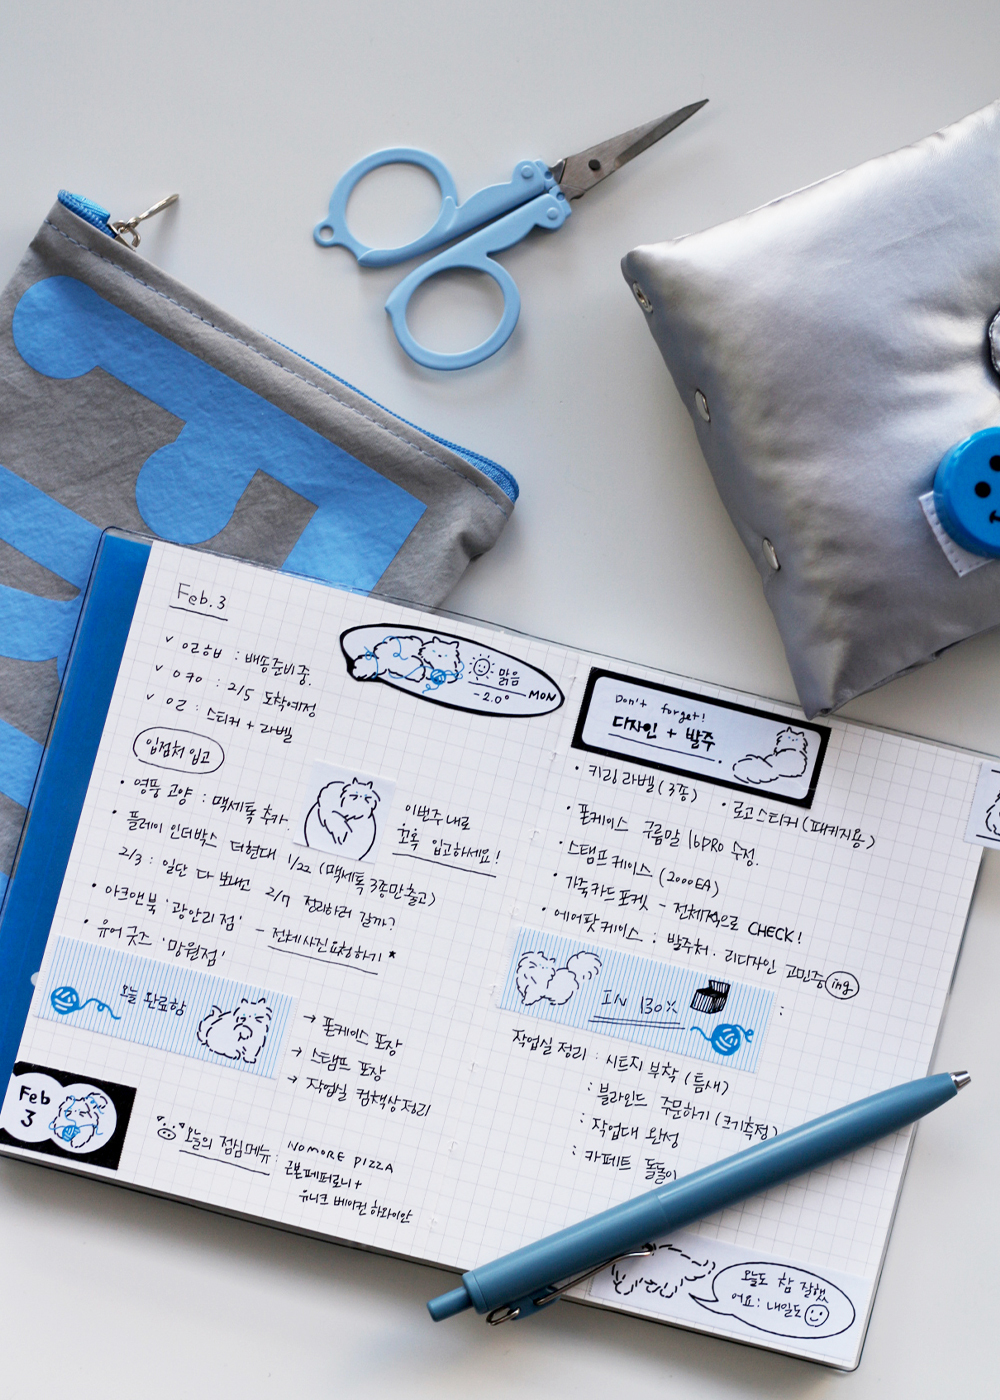 Feb. 3
맑음
-2.0° MON
∨ 오리하비 : 배송준비중.
이구이 : 2/5 도착예정
∨ 오리 : 스티커 + 라벨
입점처 입고
• 영풍 고양 : 맥세톡 추가.
• 플레이 인더박스 더현대 1/22 (맥세톡 3종만출고)
2/3 : 일단 다 보내고 2/7 정리하러 갈까?
• 아크앤북 '광안리점' - 전체사진요청하기 *
• 유어굿즈 '망원점'
이번주내로
꼬옥 입고하세요!
오늘 완료함
→ 폰케이스 포장
→ 스탬프 포장
→ 작업실 컴책상정리
Feb
3
오늘의 점심메뉴 : NOMORE PIZZA
근본페퍼로니 +
유니크 베이컨 하와이안
Don't forget!
디자인 + 발주.
• 키링라벨 (3종) • 로고스티커 (패키지용)
• 폰케이스 구름말 16PRO 수정.
• 스탬프케이스 (2000EA)
• 가죽카드포켓 - 전체적으로 CHECK!
• 에어팟케이스 : 발주처. 리디자인 고민중 ing
IN 130%
작업실 정리 : 시트지 부착 (틈새)
: 블라인드 주문하기 (크기측정)
: 작업대 완성
: 카페트 돌돌이
오늘도 참 잘했
어요 : 내일도